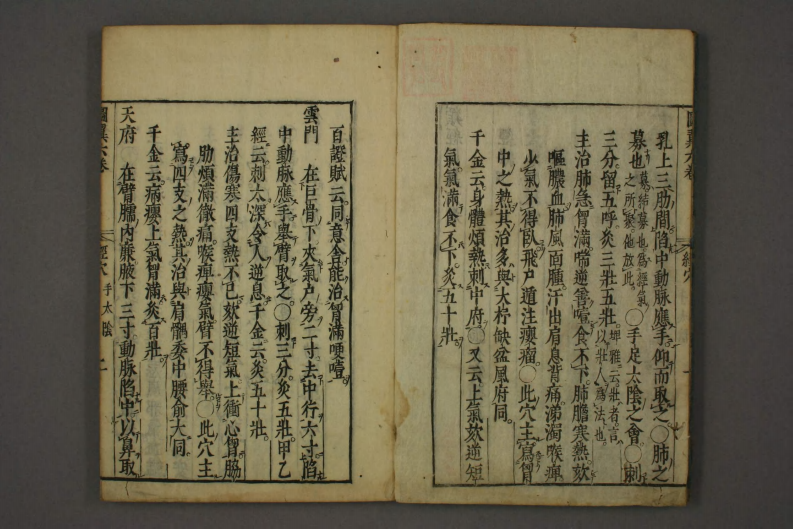 圖翼六卷
經穴
乳上三肋間陷中動脉應手仰而取之〇肺之
募也募結募也爲經氣之所聚他倣此〇手足太陰之會〇刺
三分留五呼灸三壯五壯埤雅云壯者言以壯人爲法也
主治肺急胷滿喘逆善噎食不下肺膽寒熱欬
嘔膿血肺風面腫汗出肩息背痛涕濁喉痺
少氣不得臥飛尸遁注癭瘤〇此穴主寫胷
中之熱其治多與大杼缺盆風府同
千金云身體煩熱刺中府〇又云上氣欬逆短
氣氣滿食不下灸五十壯
百證賦云同意舍能治胷滿哽噎
雲門 在巨骨下夾氣戶旁二寸去中行六寸陷
中動脉應手舉臂取之〇刺三分灸五壯甲乙
經云刺太深令人逆息千金云灸五十壯
主治傷寒四支熱不已欬逆短氣上衝心胷脇
肋煩滿徹痛喉痺癭氣臂不得舉〇此穴主
寫四支之熱其治與肩髃委中腰俞大同
千金云病癭上氣胷滿灸百壯
天府 在臂臑內廉腋下三寸動脉陷中以鼻取
圖翼六卷
經穴 手太陰 二